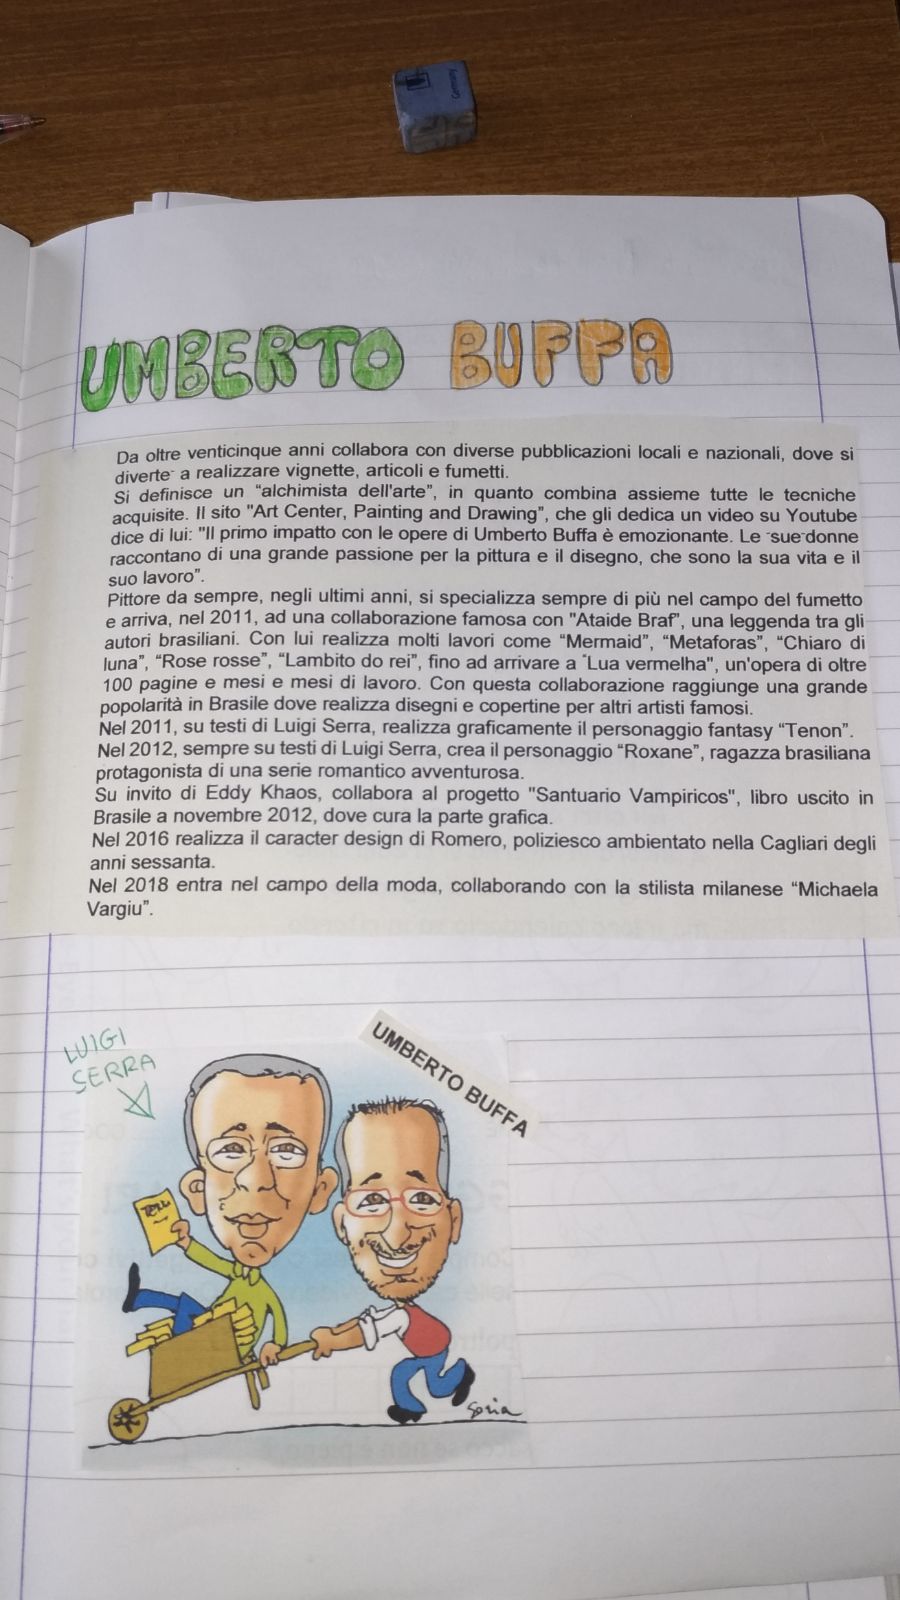 Germany
UMBERTO BUFFA
Da oltre venticinque anni collabora con diverse pubblicazioni locali e nazionali, dove si
diverte a realizzare vignette, articoli e fumetti.
Si definisce un “alchimista dell'arte”, in quanto combina assieme tutte le tecniche
acquisite. Il sito "Art Center, Painting and Drawing”, che gli dedica un video su Youtube
dice di lui: "Il primo impatto con le opere di Umberto Buffa è emozionante. Le sue donne
raccontano di una grande passione per la pittura e il disegno, che sono la sua vita e il
suo lavoro”.
Pittore da sempre, negli ultimi anni, si specializza sempre di più nel campo del fumetto
e arriva, nel 2011, ad una collaborazione famosa con "Ataide Braf”, una leggenda tra gli
autori brasiliani. Con lui realizza molti lavori come “Mermaid”, “Metaforas”, “Chiaro di
luna”, “Rose rosse”, “Lambito do rei”, fino ad arrivare a “Lua vermelha", un'opera di oltre
100 pagine e mesi e mesi di lavoro. Con questa collaborazione raggiunge una grande
popolarità in Brasile dove realizza disegni e copertine per altri artisti famosi.
Nel 2011, su testi di Luigi Serra, realizza graficamente il personaggio fantasy “Tenon”.
Nel 2012, sempre su testi di Luigi Serra, crea il personaggio “Roxane”, ragazza brasiliana
protagonista di una serie romantico avventurosa.
Su invito di Eddy Khaos, collabora al progetto "Santuario Vampiricos", libro uscito in
Brasile a novembre 2012, dove cura la parte grafica.
Nel 2016 realizza il caracter design di Romero, poliziesco ambientato nella Cagliari degli
anni sessanta.
Nel 2018 entra nel campo della moda, collaborando con la stilista milanese “Michaela
Vargiu”.
LUIGI
SERRA
UMBERTO BUFFA